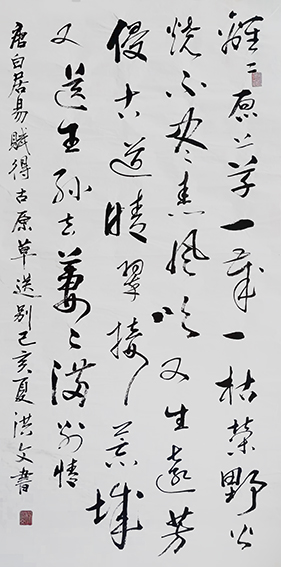 離〻原上草一歲一枯榮野火
燒不盡春風吹又生遠芳
侵古道晴翠接荒城
又送王孫去萋〻滿別情
唐白居易賦得古原草送别己亥夏洪文書